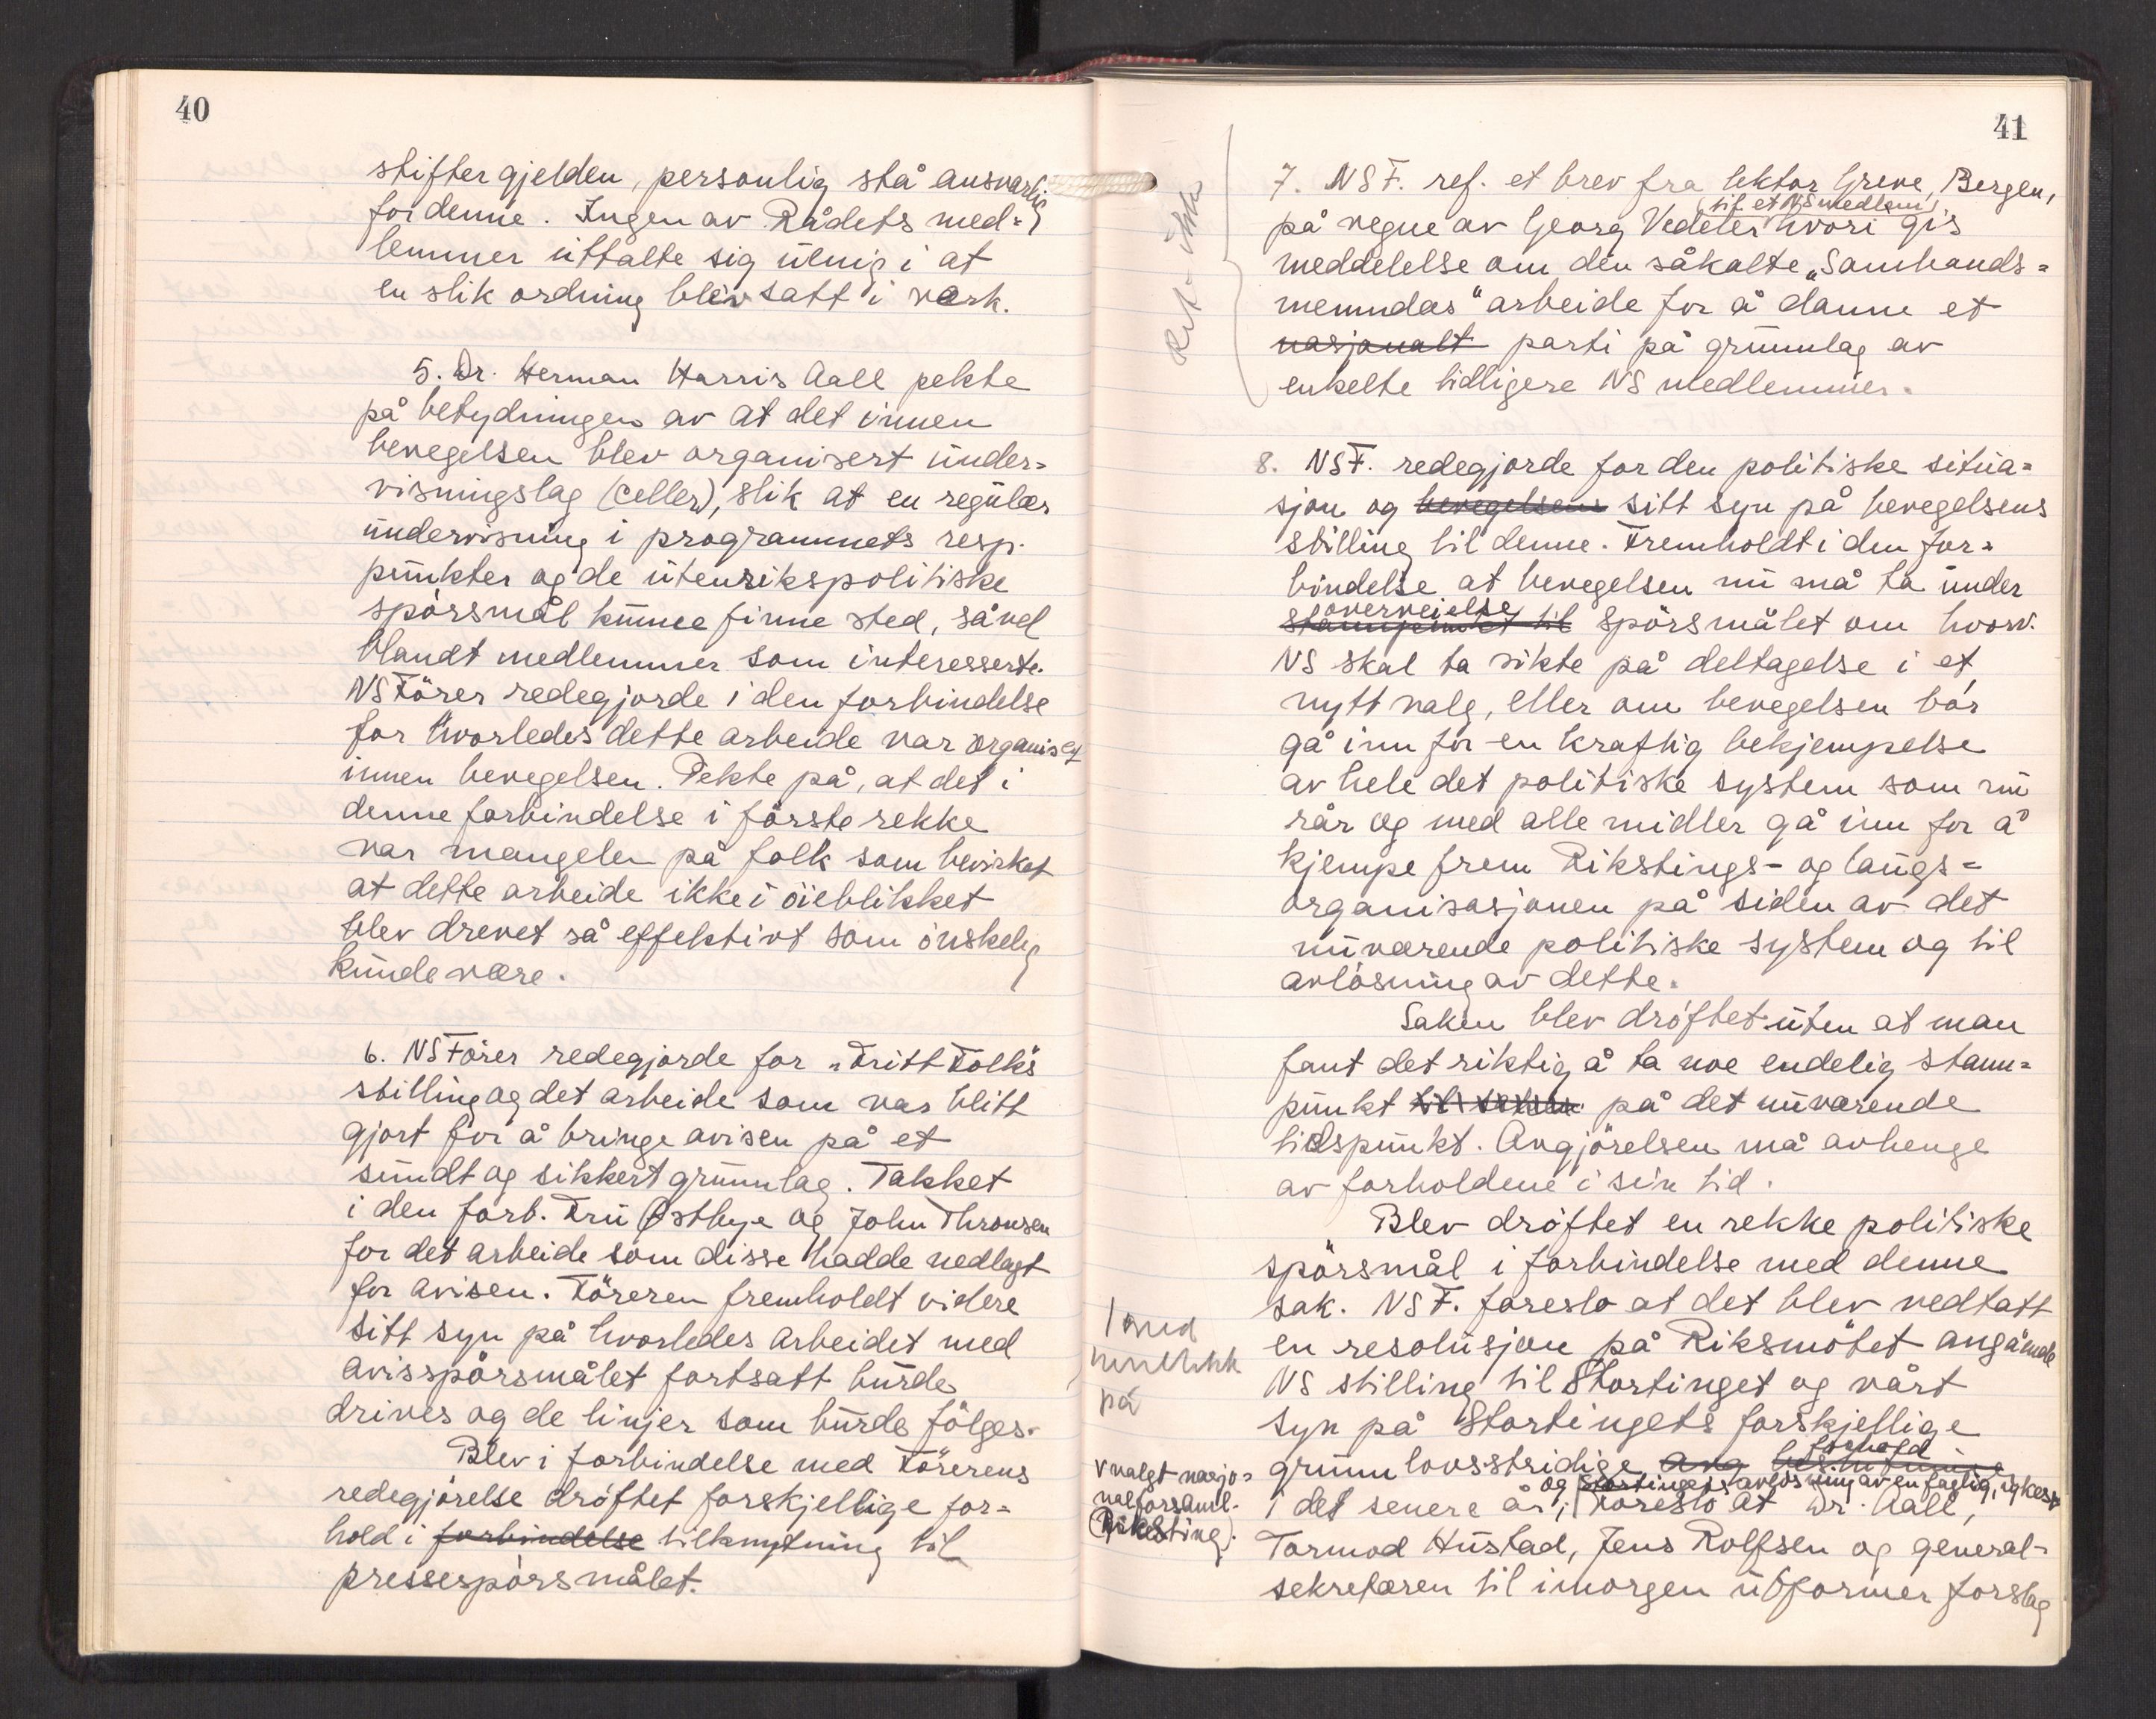 40
stifter gjelden, personlig stå ansvarlig
for denne. Ingen av Rådets med=
lemmer uttalte sig uenig i at
en slik ordning blev satt i verk.
5. Dr. Herman Harris Aall pekte
på betydningen av at det innen
bevegelsen blev organisert under=
visningslag (celler), slik at en regulær
undervisning i programmets resp.
punkter og de utenrikspolitiske
spörsmål kunne finne sted, såvel
blandt medlemmer som interesserte.
NS Förer redegjorde i den forbindelse
for hvorledes dette arbeide var organisert
innen bevegelsen. Pekte på, at det i
denne forbindelse i förste rekke
var mangelen på folk som bevirket
at dette arbeide ikke i öieblikket
blev drevet så effektivt som önskelig
kunde være.
6. NS Förer redegjorde for „Fritt Folk"s
stilling og det arbeide som var blitt
gjort for å bringe avisen på et
sundt og sikkert grunnlag. Takket
i den forb. Fru Østbye og John Thronsen
for det arbeide som disse hadde nedlagt
for avisen. Föreren fremholdt videre
sitt syn på hvorledes arbeidet med
avisspörsmålet fortsatt burde
drives og de linjer som burde fölges.
Blev i forbindelse med Förerens
redegjörelse dröftet forskjellige for=
hold i forbindelse tilknytning til
pressespörsmålet.
41
7. NSF. ref. et brev fra lektor Greve, Bergen,
(til et NS medlem)
på vegne av Georg Vedeler hvori gis
meddelelse om den såkalte „Sambands=
nemndas" arbeide for å danne et
nasjonalt parti på grunnlag av
enkelte tidligere NS medlemmer.
8. NSF. redegjorde for den politiske situa=
sjon og bevegelsens sitt syn på bevegelsens
stilling til denne. Fremholdt i den for=
bindelse at bevegelsen nu må ta under
overveielse
stannpunktet til spörsmålet om hvorv.
NS skal ta sikte på deltagelse i et
nytt valg, eller om bevegelsen bör
gå inn for en kraftig bekjempelse
av hele det politiske system som nu
rår og med alle midler gå inn for å
kjempe frem Rikstings- og laugs=
organisasjonen på siden av det
nuværende politiske system og til
avlösning av dette.
Saken blev dröftet uten at man
fant det riktig å ta noe endelig stann=
punkt til saken på det nuværende
tidspunkt. Avgjörelsen må avhenge
av forholdene i sin tid.
Blev dröftet en rekke politiske
spörsmål i forbindelse med denne
sak. NSF. foreslo at det blev vedtatt
en resolusjon på Riksmötet angående
NS stilling til Stortinget og vårt
syn på Stortingets forskjellige
forhold
grunnlovsstridige ang
og Stortingets avlösning av en faglig, yrkes v
i det senere år; Foreslo at Dr. Aall,
v valgt nasjo=
nalforsaml.
(Riksting).
Tormod Hustad, Jens Rolfsen og general-
sekretæren til imorgen utformer forslag